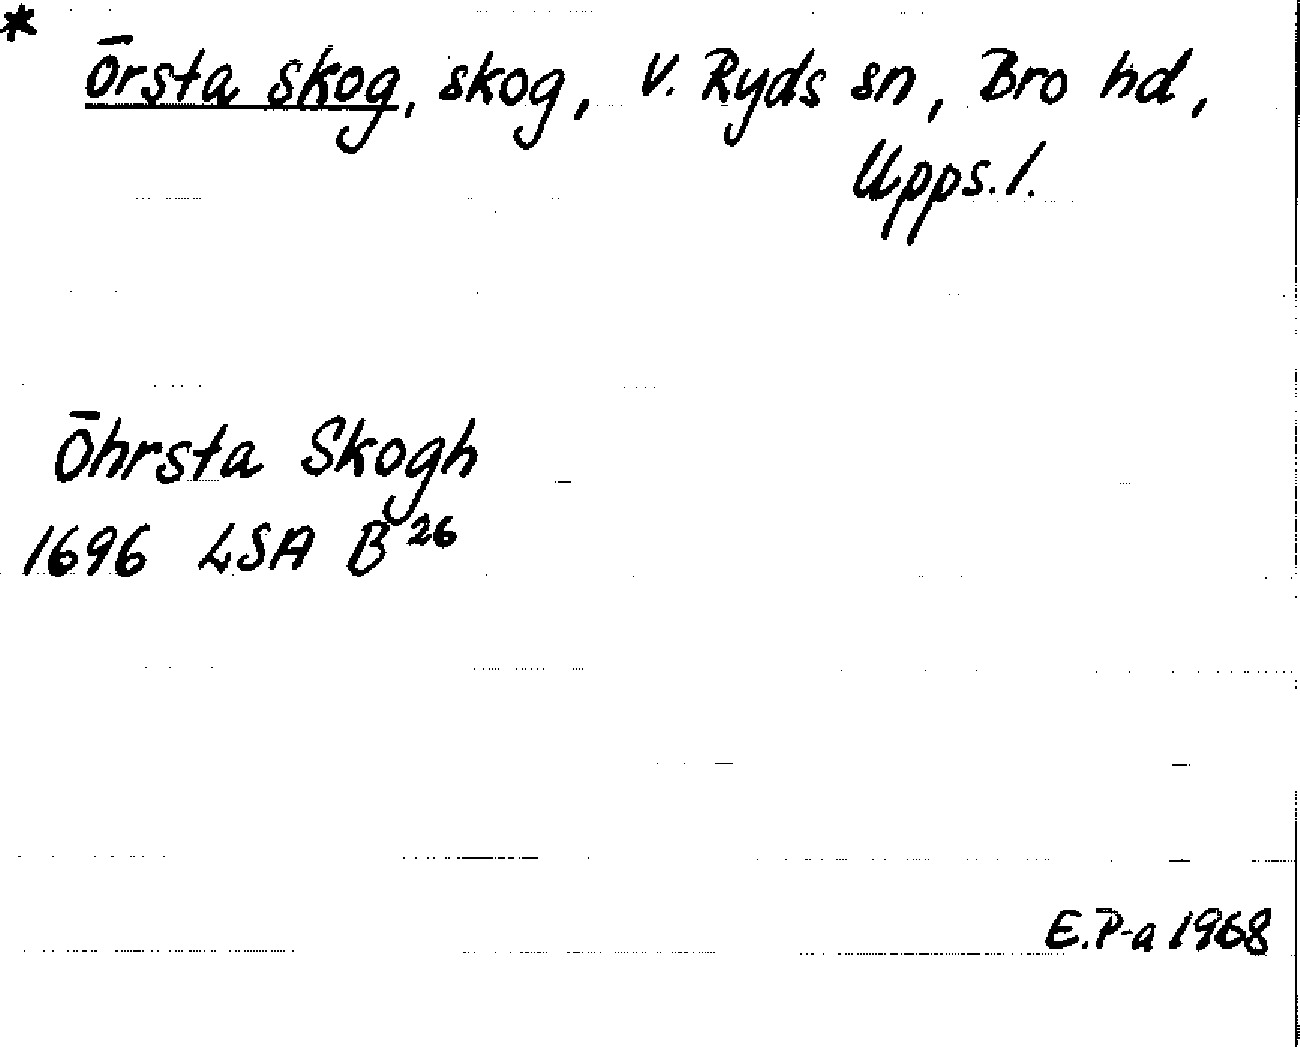 * Örsta skog, skog, V. Ryds sn, Bro hd,
Upps. l.
Öhrsta Skogh
1696 LSA B 26
E.P-a 1968